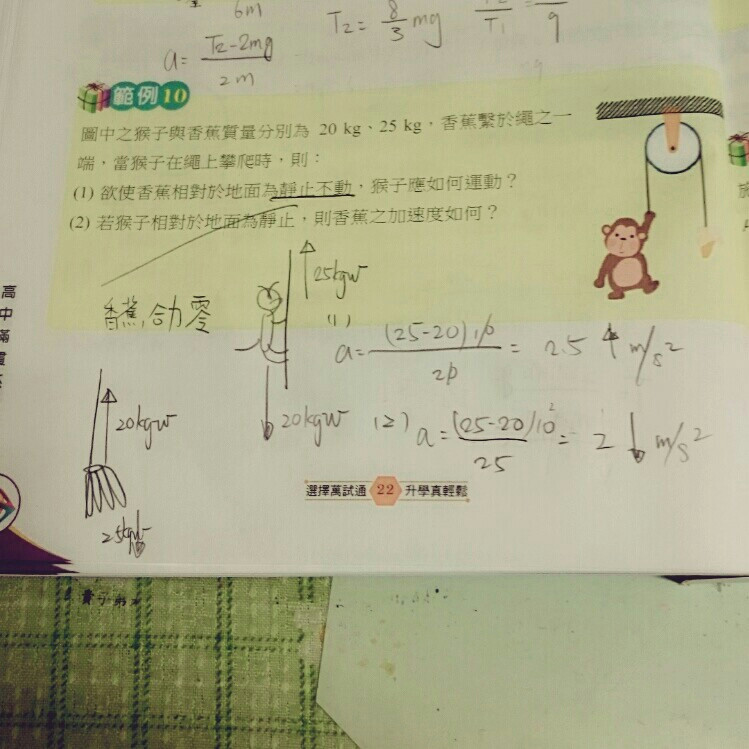 6m
a = T2-2mg / 2m
T2 = 8/3 mg
T1
9
範例10
圖中之猴子與香蕉質量分別為 20 kg、25 kg，香蕉繫於繩之一
端，當猴子在繩上攀爬時，則：
(1) 欲使香蕉相對於地面為靜止不動，猴子應如何運動？
(2) 若猴子相對於地面為靜止，則香蕉之加速度如何？
香蕉，合力零
25kgw
20kgw
(1)
a = (25-20)10 / 20 = 2.5 ↑ m/s²
(2) a = (25-20)10 / 25 = 2 ↓ m/s²
20kgw
25kgw
高
中
滿
選擇萬試通 22 升學真輕鬆